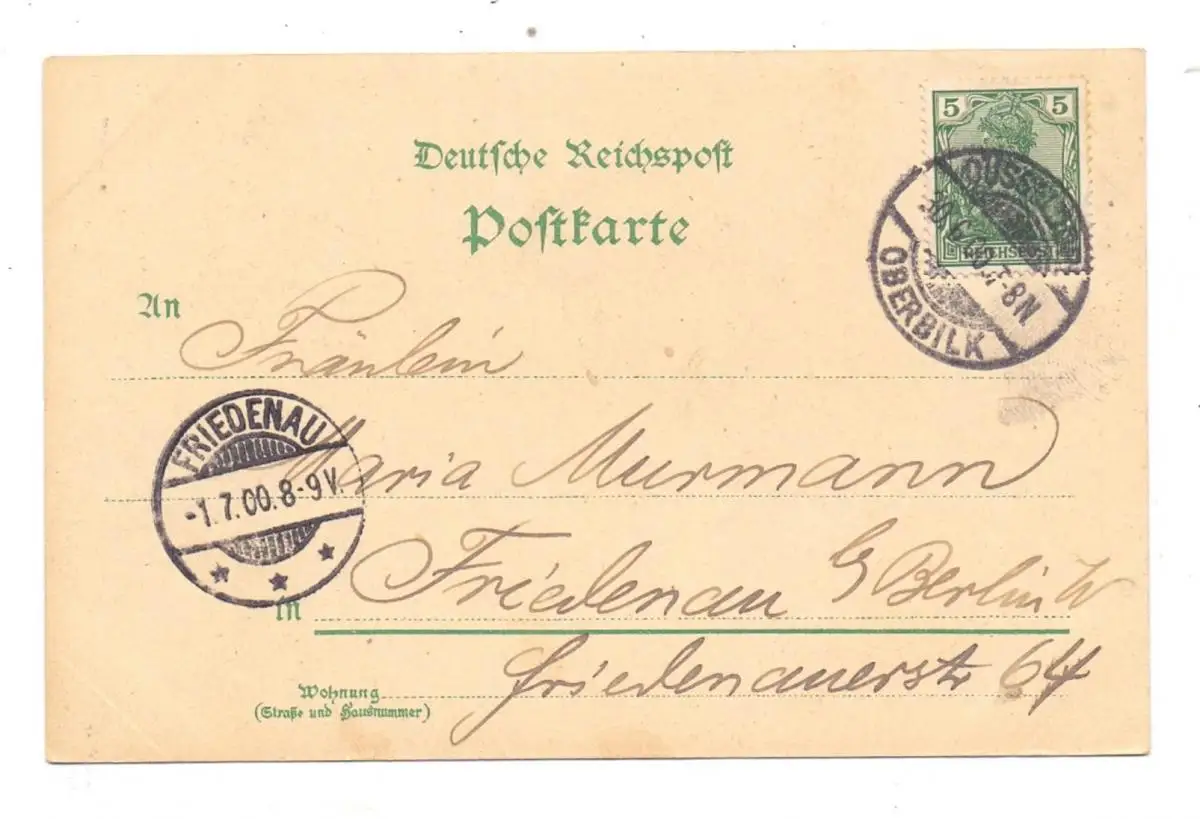 Deutsche Reichspost
Postkarte
5 5
REICHSPOST
OBERBILK
7-8N.
An Fräulein
Maria Murmann
FRIEDENAU
-1.7.00.8-9V.
in Friedenau b/ Berlin W
Friedenauerstr 64
Wohnung
(Straße und Hausnummer)